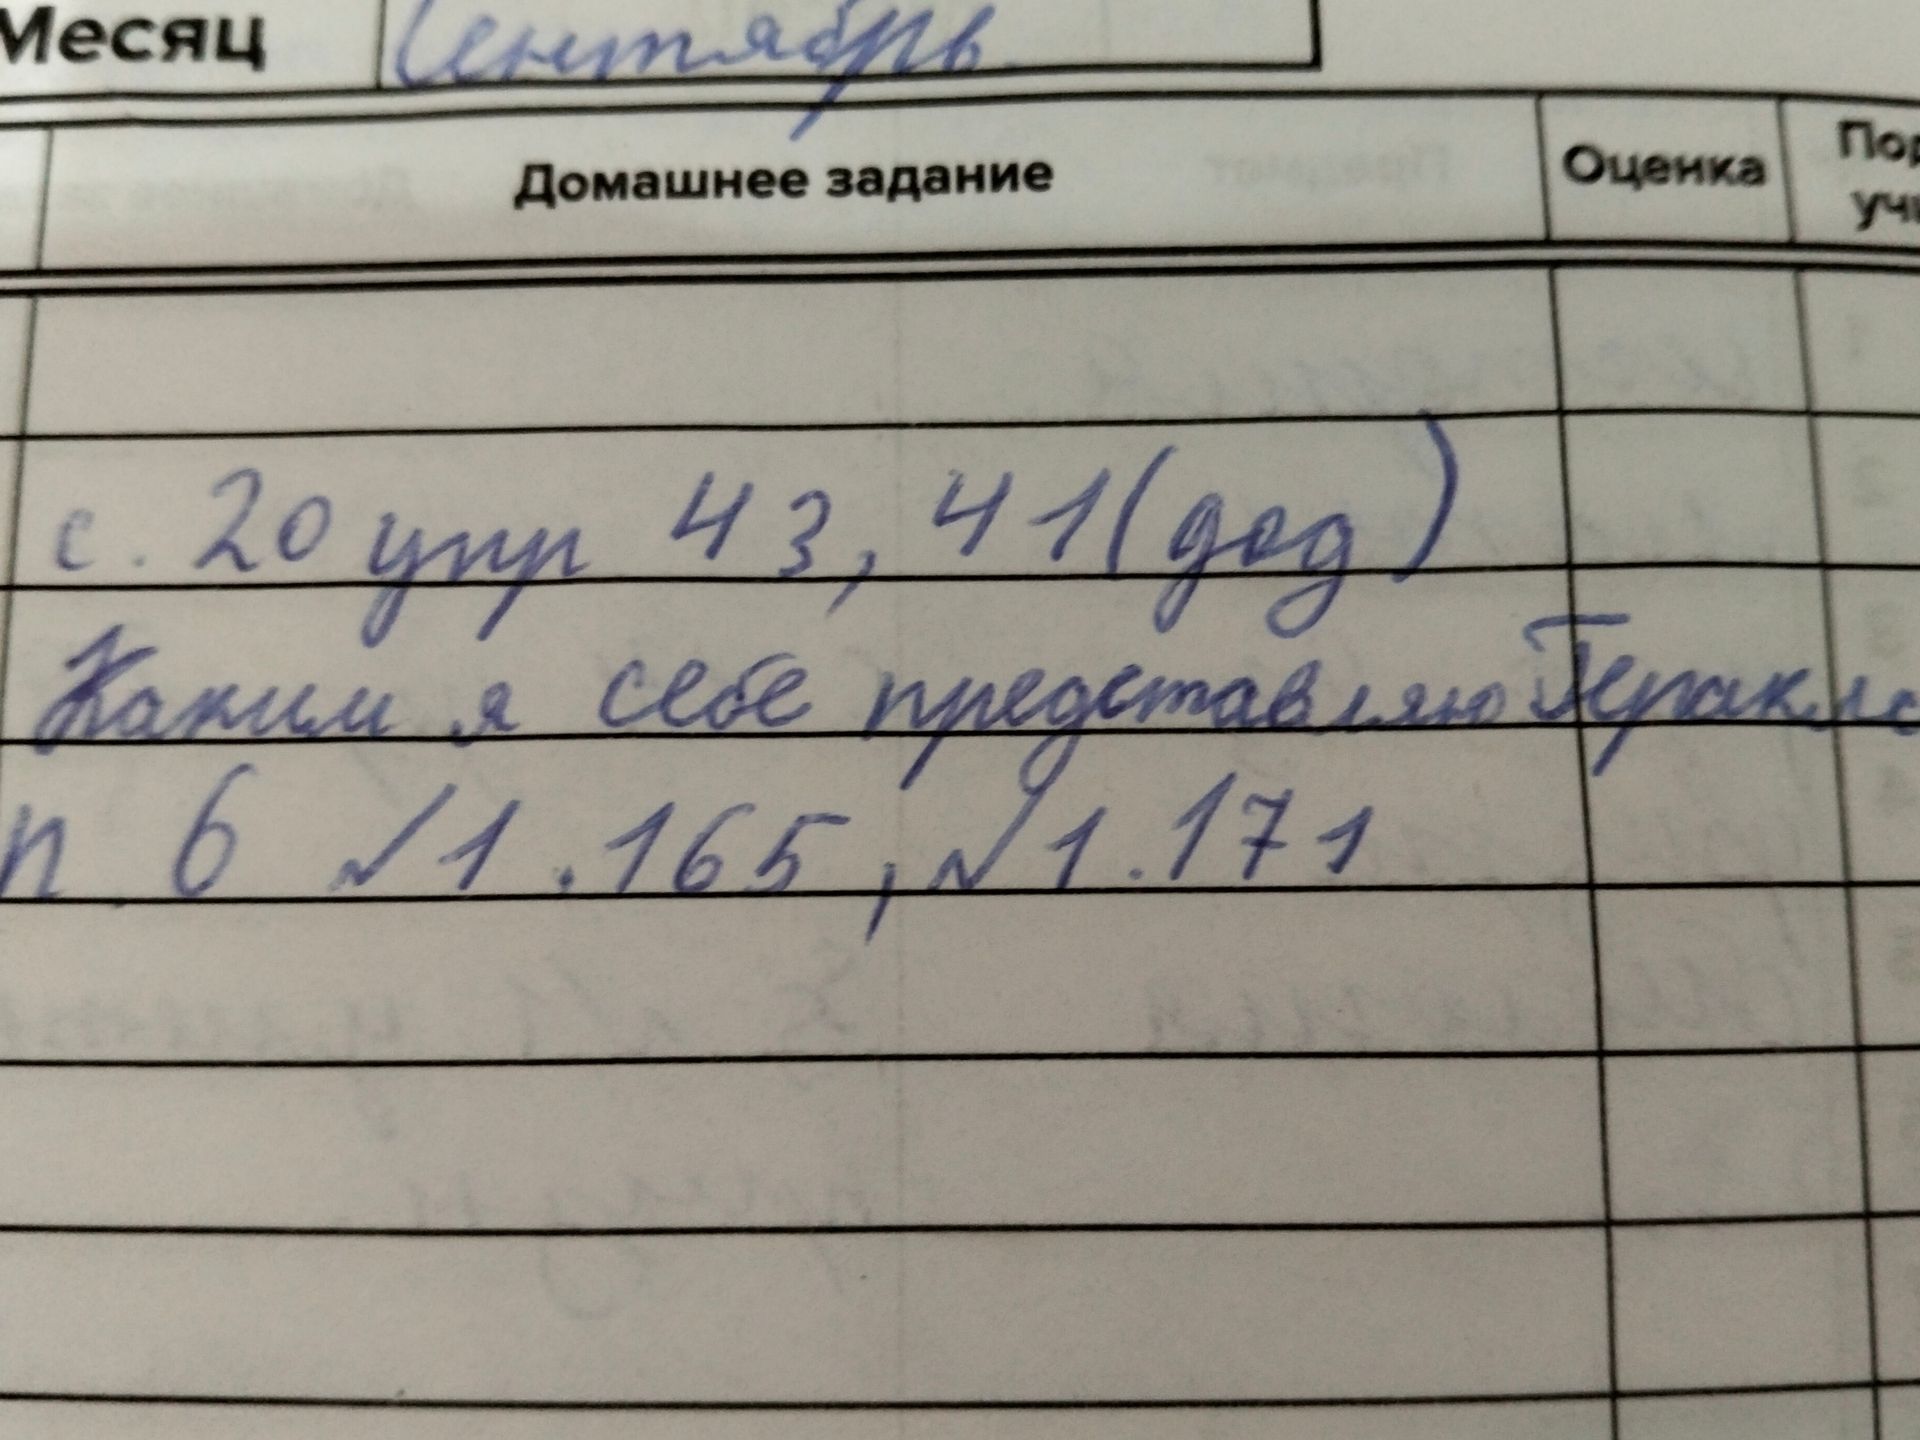 Месяц Сентябрь
Домашнее задание Оценка
с. 20 упр 43, 41 (дод)
Каким я себе представляю Геракла
п 6 №1.165, №1.171